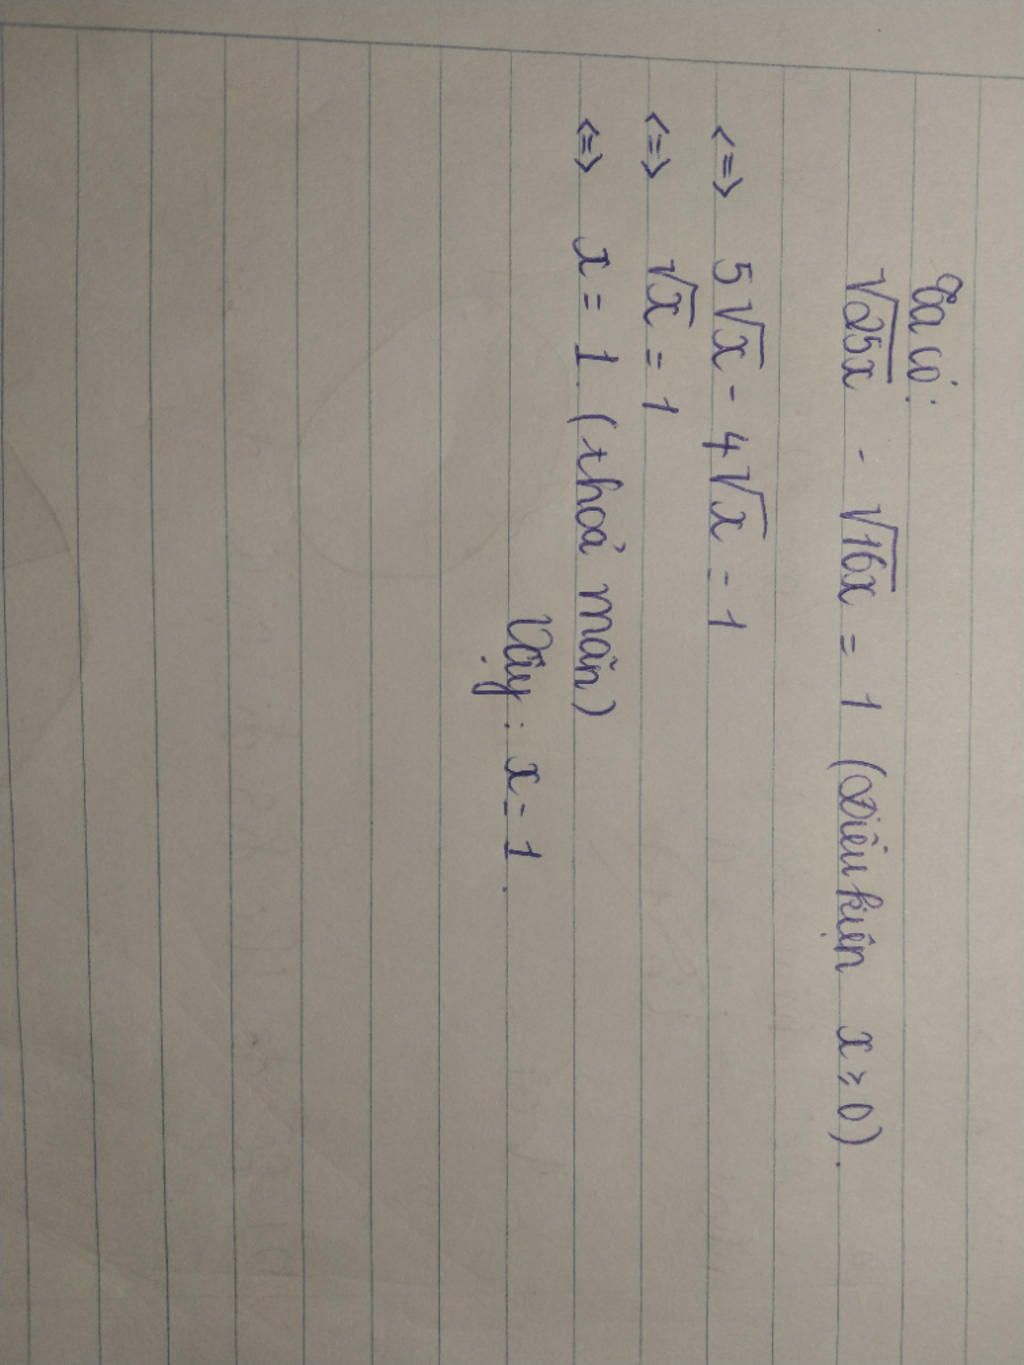 Ta có:
√25x - √16x = 1 (Điều kiện x ≥ 0).
<=> 5√x - 4√x = 1
<=> √x = 1
<=> x = 1 (thoả mãn)
Vậy: x = 1.